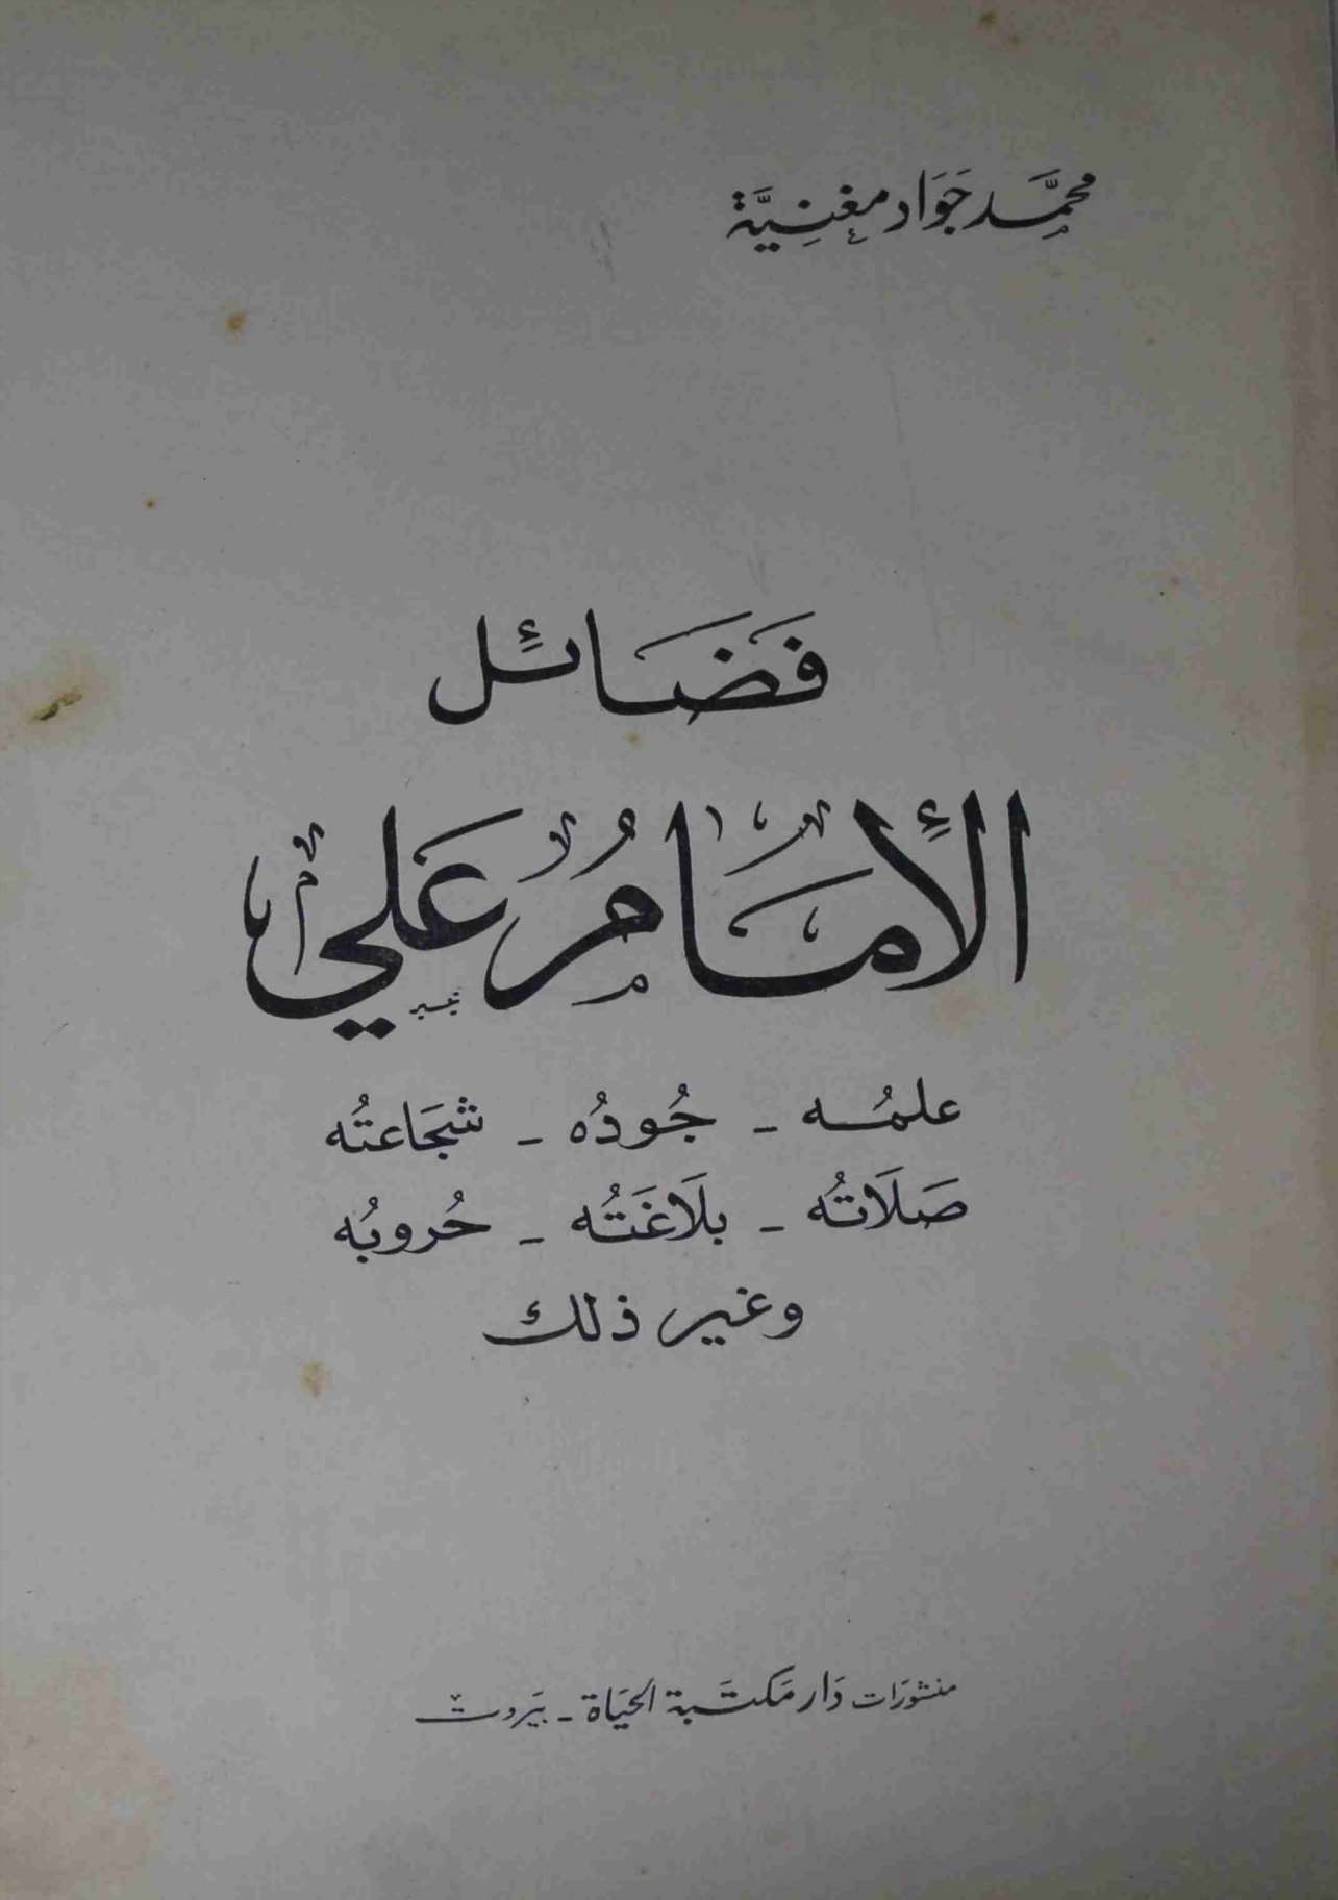 محمَّد جَوَاد مغنِيَّة
فَضَائِل
الإمَامُ عَلي
علمُه - جُودُه - شجَاعتُه
صَلَاتُه - بلَاغَتُه - حُروبُه
وغير ذلك
منشورَات دَار مَكتَبة الحيَاة - بَيروت